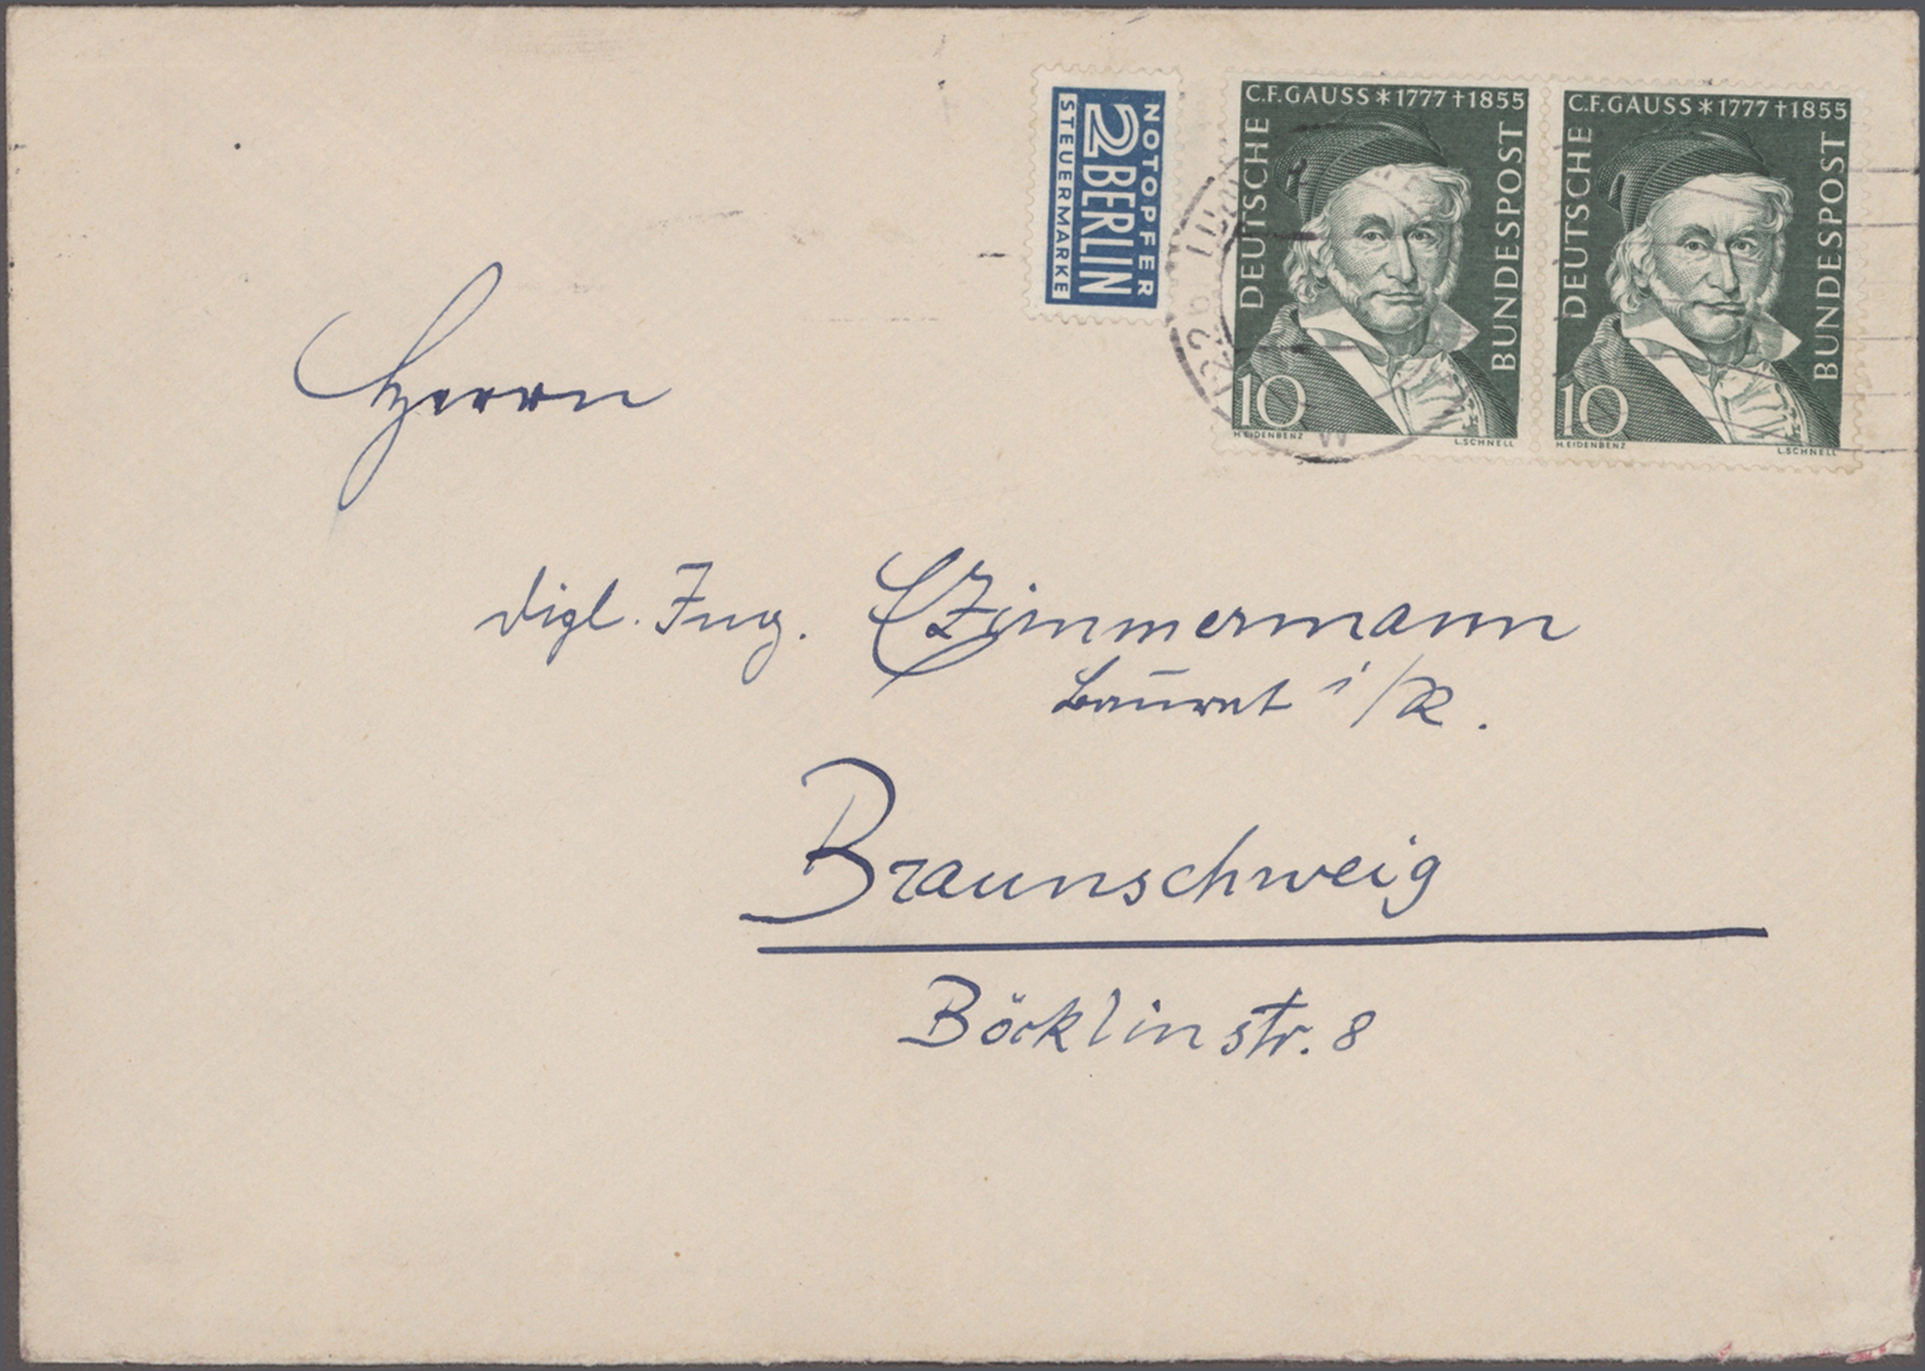 NOTOPFER
2 BERLIN
STEUERMARKE
C.F.GAUSS * 1777 † 1855
DEUTSCHE
BUNDESPOST
10
H.EIDENBENZ L.SCHNELL
C.F.GAUSS * 1777 † 1855
DEUTSCHE
BUNDESPOST
10
H.EIDENBENZ L.SCHNELL
Herrn
dipl. Ing. E Zimmermann
Baurat i/R.
Braunschweig
Böcklinstr. 8